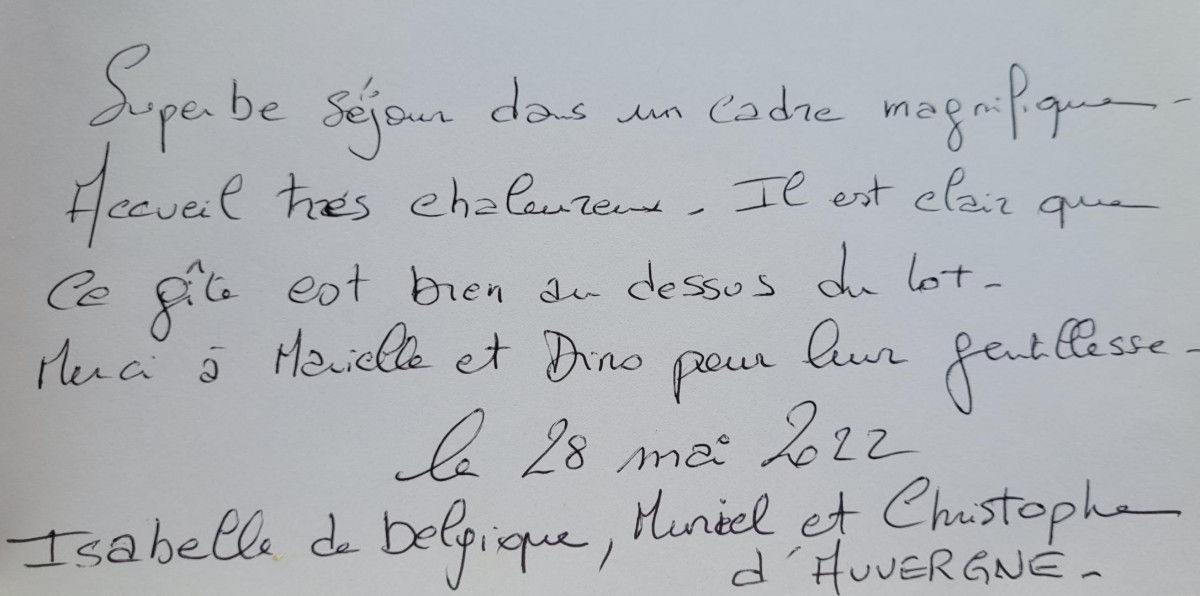 Superbe séjour dans un cadre magnifique -
Accueil très chaleureux. Il est clair que
ce gîte est bien au dessus du lot -
Merci à Marielle et Dino pour leur gentillesse -
le 28 mai 2022
Isabelle de Belgique, Muriel et Christophe
d'AUVERGNE -